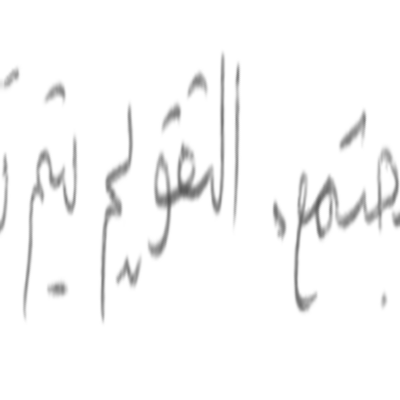 جتمع. التقويم يتم